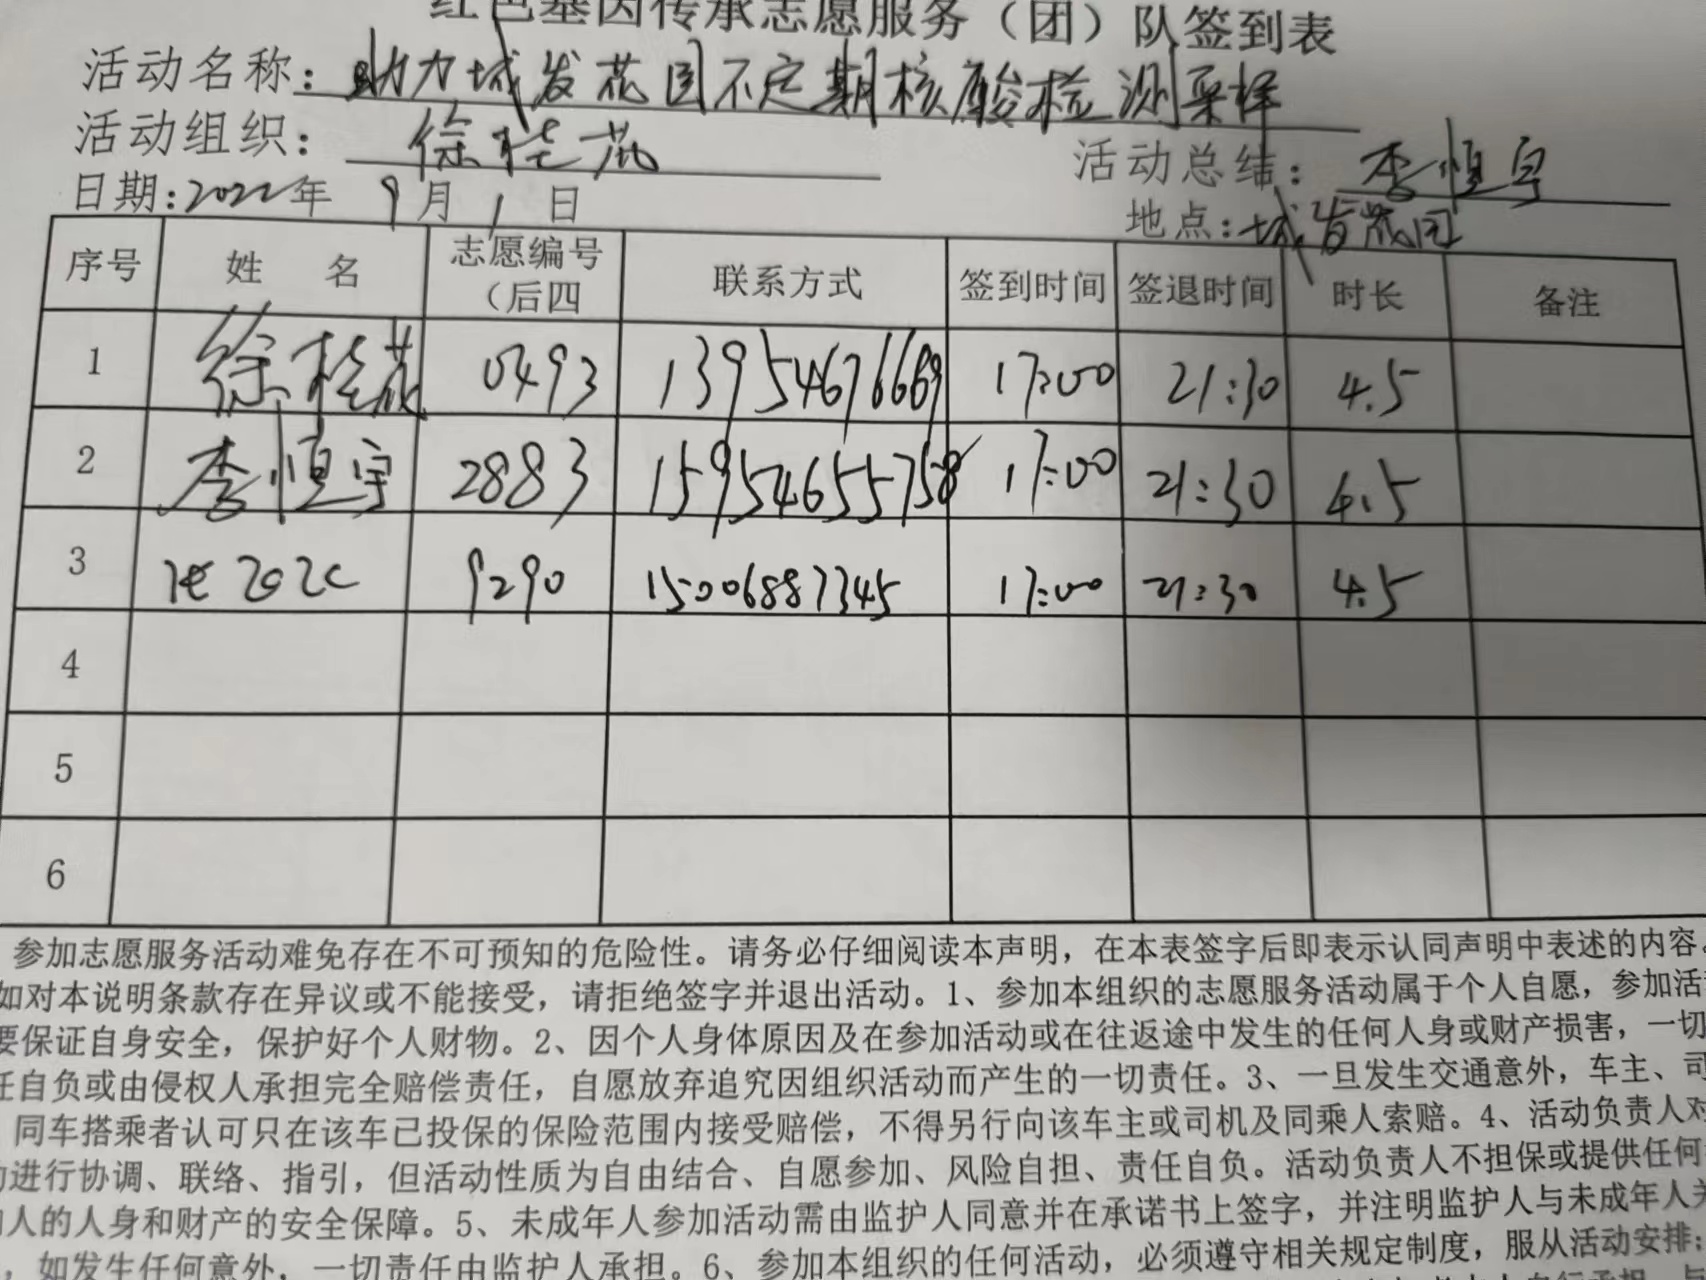 红色基因传承志愿服务（团）队签到表
活动名称：助力城发花园不定期核酸检测采样
活动组织：徐桂花
活动总结：李恒宇
日期：2022年 9月 1日
地点：城发花园
序号 姓 名 志愿编号（后四 联系方式 签到时间 签退时间 时长 备注
1 徐桂花 0493 13954676669 17:00 21:30 4.5
2 李恒宇 2883 15954655758 17:00 21:30 4.5
3 9290 15006887345 17:00 21:30 4.5
4
5
6
参加志愿服务活动难免存在不可预知的危险性。请务必仔细阅读本声明，在本表签字后即表示认同声明中表述的内容。
如对本说明条款存在异议或不能接受，请拒绝签字并退出活动。1、参加本组织的志愿服务活动属于个人自愿，参加活
要保证自身安全，保护好个人财物。2、因个人身体原因及在参加活动或在往返途中发生的任何人身或财产损害，一切
任自负或由侵权人承担完全赔偿责任，自愿放弃追究因组织活动而产生的一切责任。3、一旦发生交通意外，车主、司
同车搭乘者认可只在该车已投保的保险范围内接受赔偿，不得另行向该车主或司机及同乘人索赔。4、活动负责人对
进行协调、联络、指引，但活动性质为自由结合、自愿参加、风险自担、责任自负。活动负责人不担保或提供任何
人的人身和财产的安全保障。5、未成年人参加活动需由监护人同意并在承诺书上签字，并注明监护人与未成年人关
，如发生任何意外，一切责任由监护人承担。6、参加本组织的任何活动，必须遵守相关规定制度，服从活动安排；